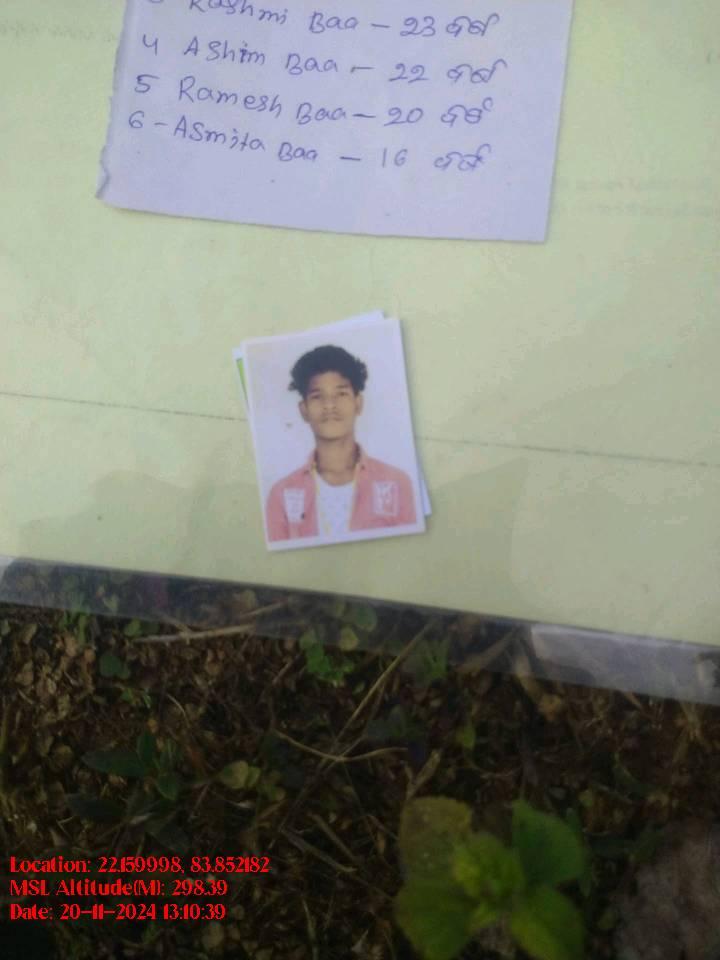 Rashmi Baa – 23 ବର୍ଷ
4 Ashim Baa – 22 ବର୍ଷ
5 Ramesh Baa – 20 ବର୍ଷ
6 – Asmita Baa – 16 ବର୍ଷ
Location: 22.159998, 83.852182
MSL Altitude(M): 298.39
Date: 20-11-2024 13:10:39